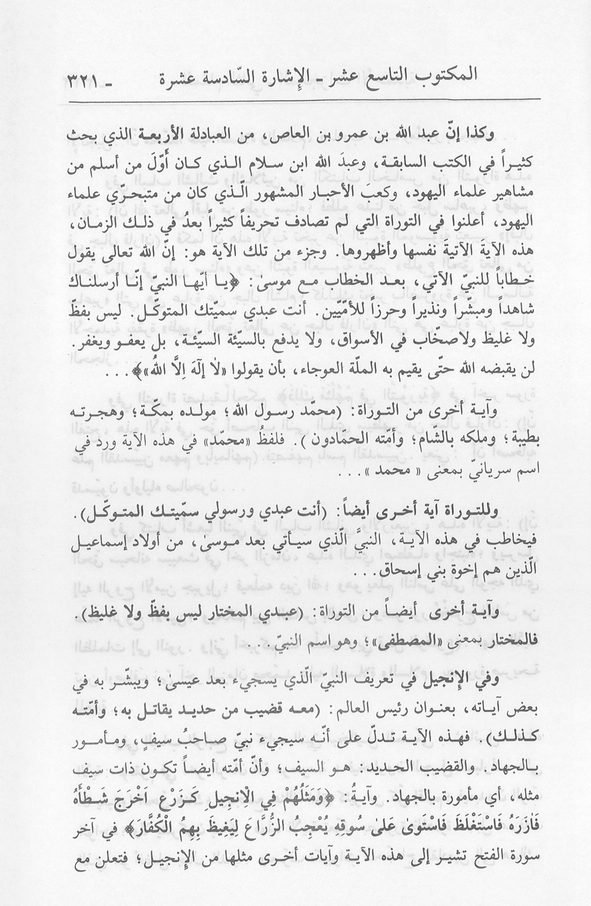 المكتوب التاسع عشر - الإشارة السّادسة عشرة - ٣٢١
وكذا إنّ عبد الله بن عمرو بن العاص، من العبادلة الأربعة الذي بحث
كثيراً في الكتب السابقة، وعبدَ الله ابن سلام الذي كان أوّلَ من أسلم من
مشاهير علماء اليهود، وكعبَ الأحبار المشهور الّذي كان من متبحرّي علماء
اليهود، أعلنوا في التوراة التي لم تصادف تحريفاً كثيراً بعدُ في ذلك الزمان،
هذه الآيةَ الآتيةَ نفسها وأظهروها. وجزء من تلك الآية هو: إنّ الله تعالى يقول
خطاباً للنبيّ الآتي، بعد الخطاب مع موسىٰ: ﴿يا أيّها النبيّ إنّا أرسلناك
شاهداً ومبشّراً ونذيراً وحرزاً للأمّيّين. أنت عبدي سميّتك المتوكّل. ليس بفظّ
ولا غليظ ولاصخّاب في الأسواق، ولا يدفع بالسيّئة السيّئة، بل يعفو ويغفر.
لن يقبضه الله حتّى يقيم به الملّة العوجاء، بأن يقولوا «لاٰ إلٓهَ إلاّ اللهُ»﴾...
وآية أخرى من التوراة: (محمّد رسول الله؛ مولده بمكّة؛ وهجرته
بطيبة؛ وملكه بالشّام؛ وأمّته الحمّادون). فلفظُ «محمّد» في هذه الآية ورد في
اسم سريانيّ بمعنى « محمد »...
وللتوراة آية أخرى أيضاً: (أنت عبدي ورسولي سمّيتك المتوكّل).
فيخاطب في هذه الآية، النبيَّ الّذي سيأتي بعد موسىٰ، من أولاد إسماعيل
الّذين هم إخوة بني إسحاق...
وآية أخرى أيضاً من التوراة: (عبدي المختار ليس بفظّ ولا غليظ).
فالمختار بمعنى «المصطفى»؛ وهو اسم النبيّ...
وفي الإنجيل في تعريف النبيّ الّذي سيجيء بعد عيسىٰ؛ ويبشّر به في
بعض آياته، بعنوان رئيس العالم: (معه قضيب من حديد يقاتل به؛ وأمّته
كذلك). فهذه الآية تدلّ على أنّه سيجيء نبيّ صاحبُ سيفٍ، ومأمور
بالجهاد. والقضيب الحديد: هو السيف؛ وأنّ أمّته أيضاً تكون ذات سيف
مثله، أي مأمورة بالجهاد. وآيةُ: ﴿وَمَثَلُهُمْ فِي الْاِنْجِيلِ كَزَرْعٍ اَخْرَجَ شَطْأَهُ
فَاٰزَرَهُ فَاسْتَغْلَظَ فَاسْتَوىٰ عَلىٰ سُوقِهِ يُعْجِبُ الزُّرَّاعَ لِيَغِيظَ بِهِمُ الْكُفَّارَ﴾ في آخر
سورة الفتح تشير إلى هذه الآية وآيات أخرى مثلها من الإنجيل؛ فتعلن مع